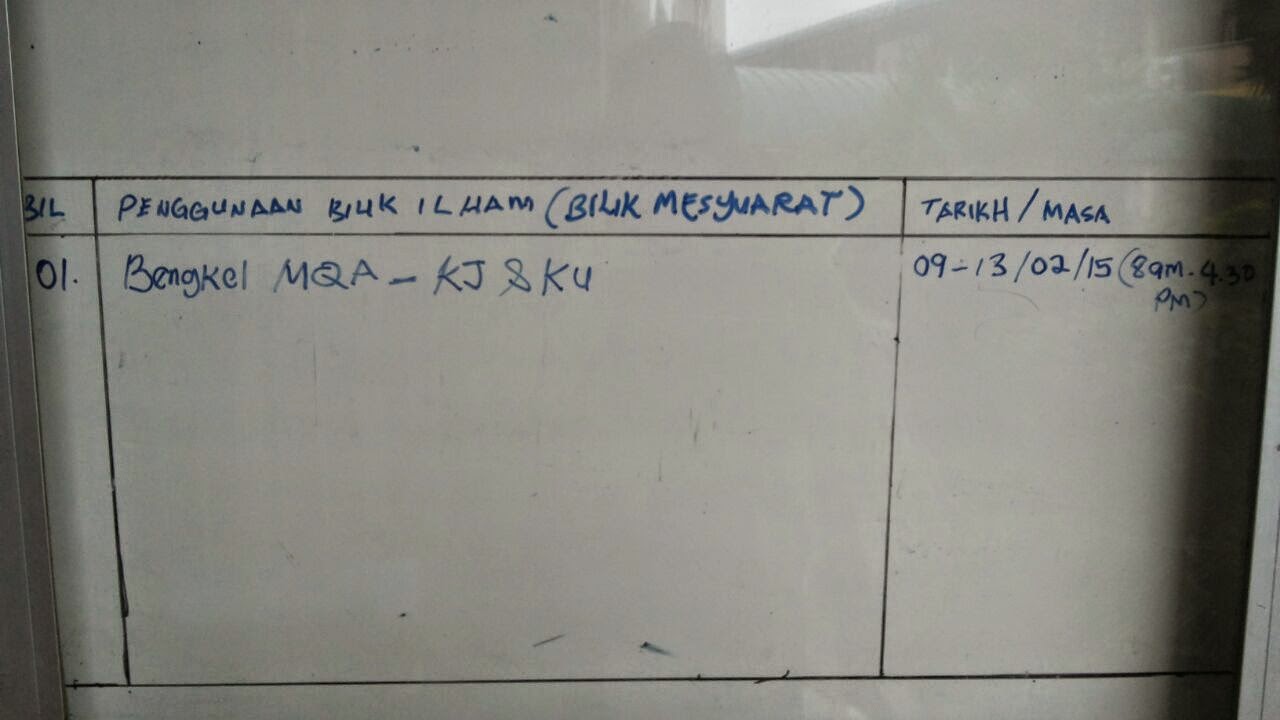 BIL PENGGUNAAN BILIK ILHAM (BILIK MESYUARAT) TARIKH / MASA
01. Bengkel MQA - KJ & KU 09-13/02/15 (8am-4.30
PM)